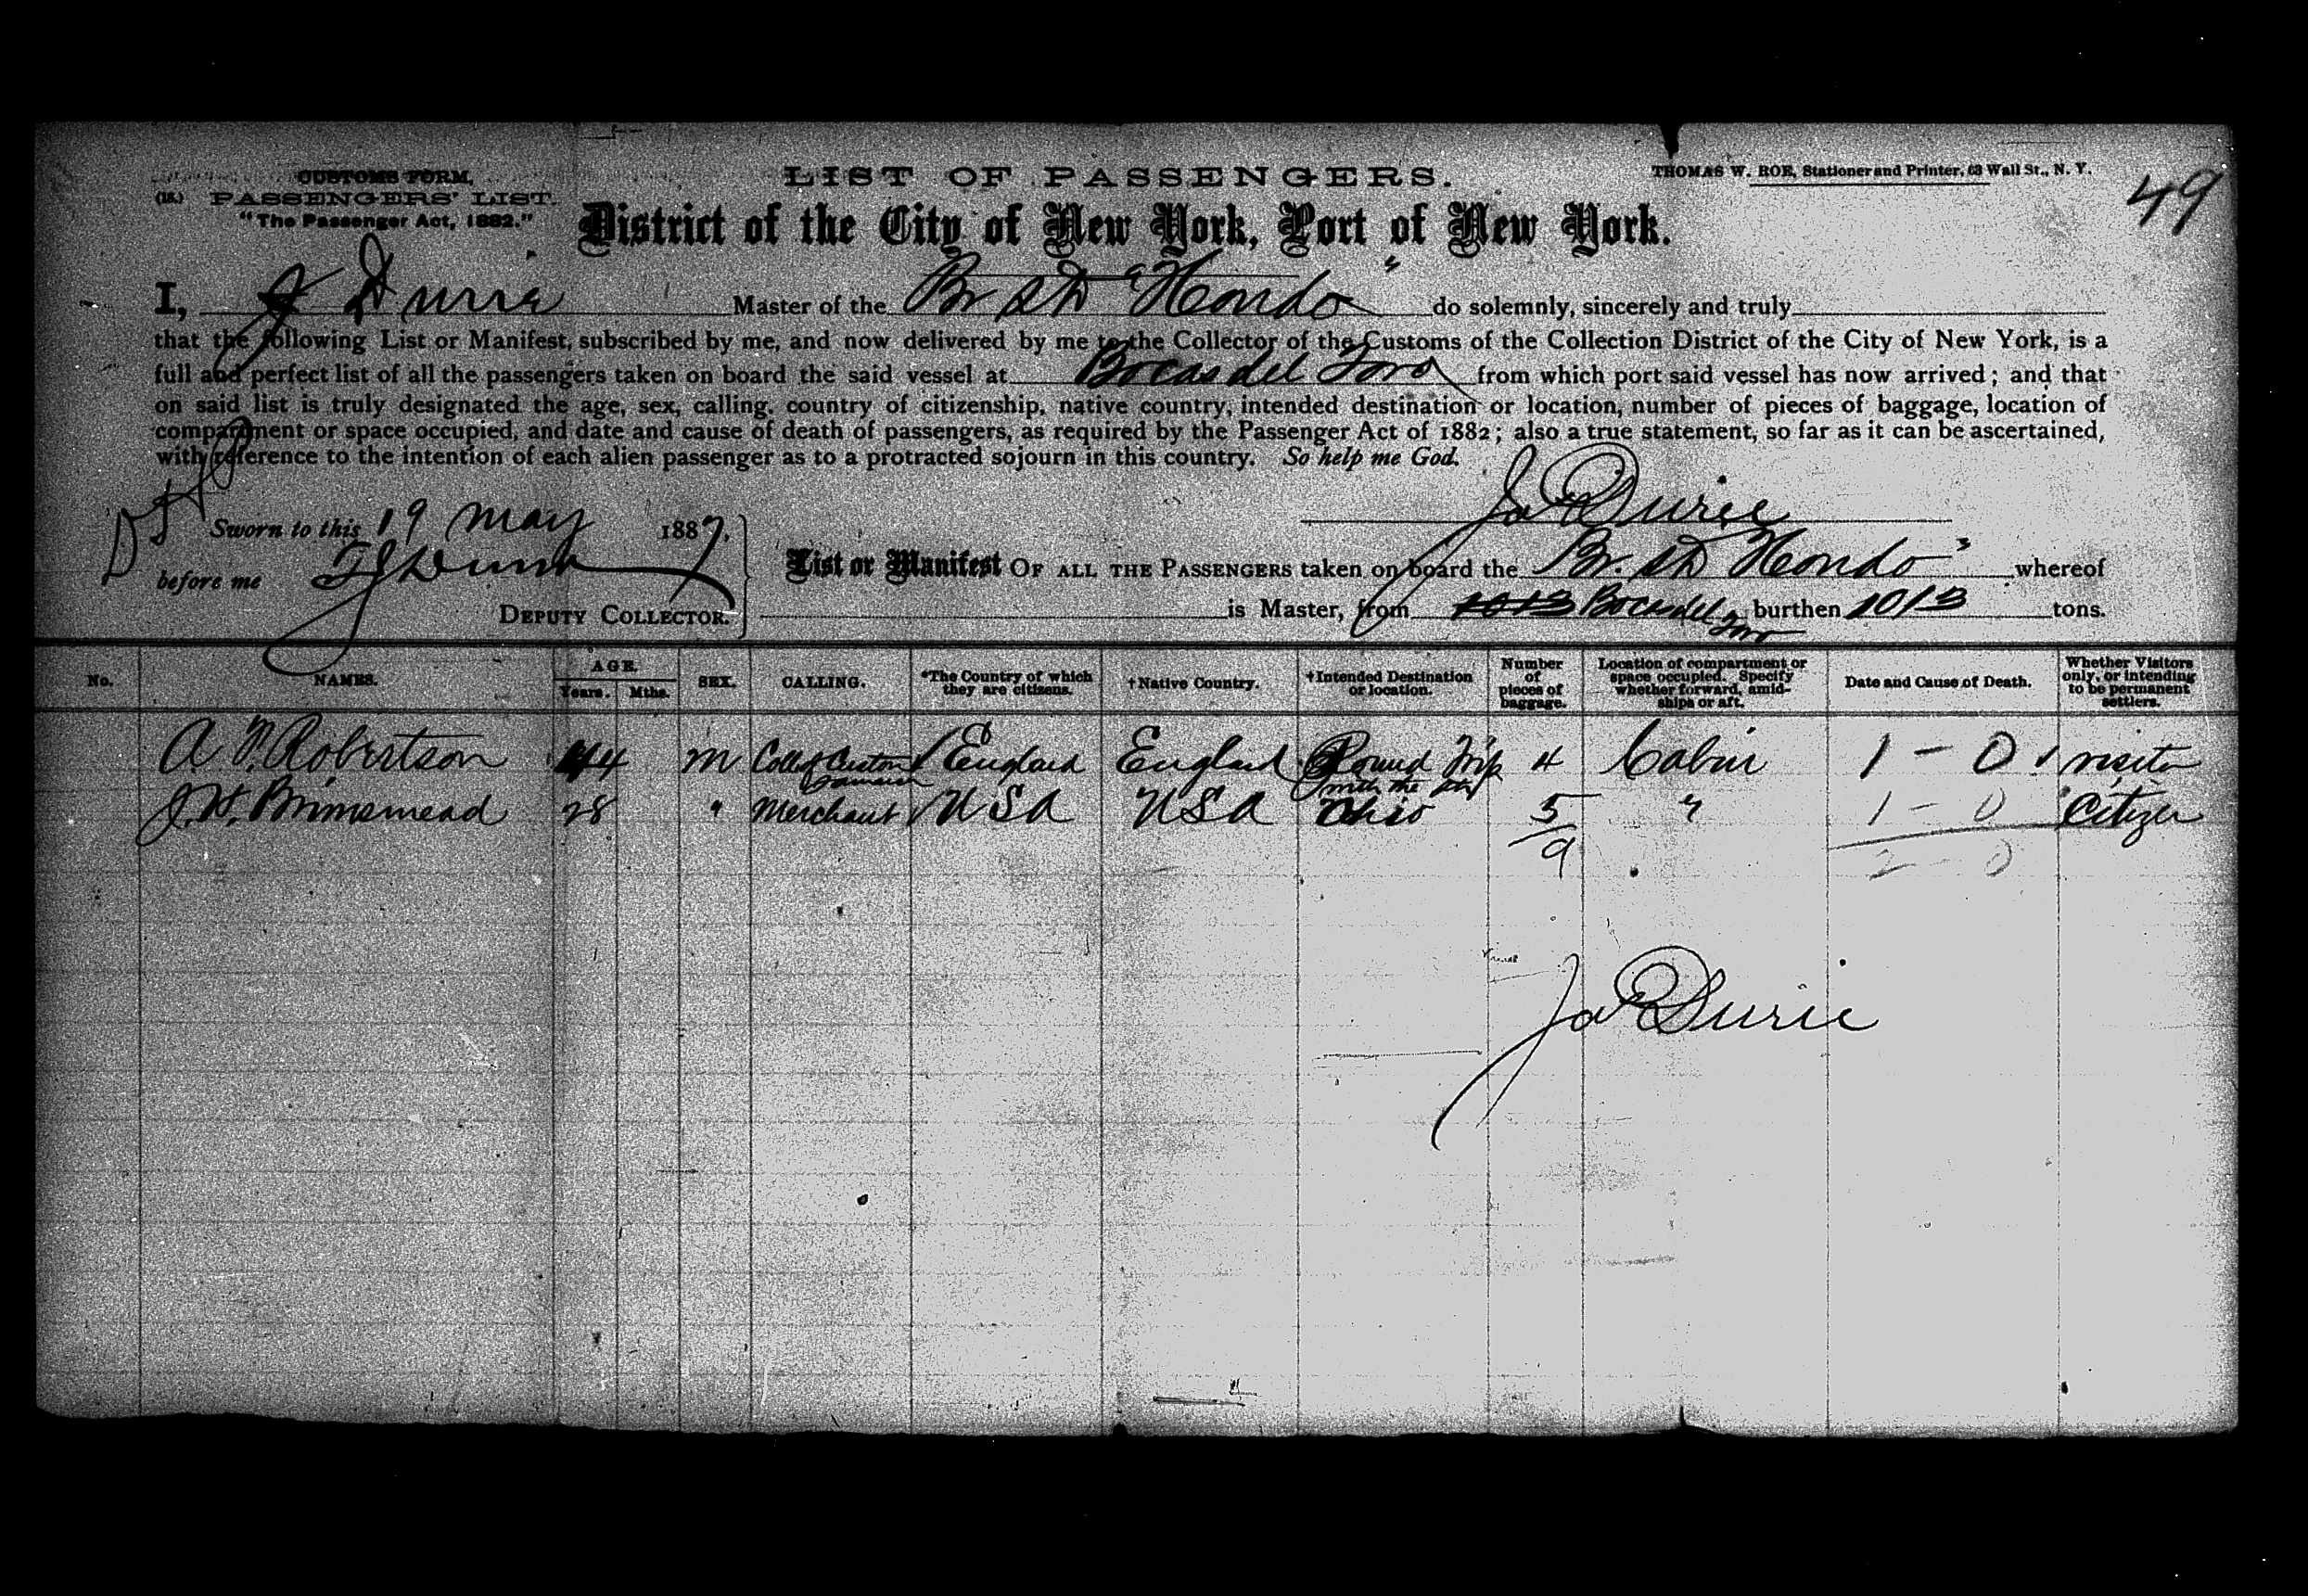 CUSTOMS FORM,
(18.) PASSENGERS' LIST.
"The Passenger Act, 1882."
LIST OF PASSENGERS.
THOMAS W. ROE, Stationer and Printer, 63 Wall St., N. Y.
49
District of the City of New York, Port of New York.
I, J Durie Master of the Br SS "Hondo" do solemnly, sincerely and truly
that the following List or Manifest, subscribed by me, and now delivered by me to the Collector of the Customs of the Collection District of the City of New York, is a
full and perfect list of all the passengers taken on board the said vessel at Bocas del Toro from which port said vessel has now arrived; and that
on said list is truly designated the age, sex, calling, country of citizenship, native country, intended destination or location, number of pieces of baggage, location of
compartment or space occupied, and date and cause of death of passengers, as required by the Passenger Act of 1882; also a true statement, so far as it can be ascertained,
with reference to the intention of each alien passenger as to a protracted sojourn in this country. So help me God.
Jas Durie
Sworn to this 19 May 1887,
before me TJ Dunn
DEPUTY COLLECTOR.
List or Manifest OF ALL THE PASSENGERS taken on board the Br. SS Hondo" whereof
is Master, from 1013 Bocas del Toro burthen 1013 tons.
No. NAMES. AGE. Years. Mths. SEX. CALLING. *The Country of which they are citizens. †Native Country. †Intended Destination or location. Number of pieces of baggage. Location of compartment or space occupied. Specify whether forward, amid-ships or aft. Date and Cause of Death. Whether Visitors only, or intending to be permanent settlers.
A. P. Robertson 44 M Coll of Customs Jamaica England England Round Trip with the 4 Cabin 1 - 0 visitor
J. W. Brimsmead 28 " Merchant USA USA Ohio 5 " 1 - 0 Citizen
9 2 - 0
Jas Durie